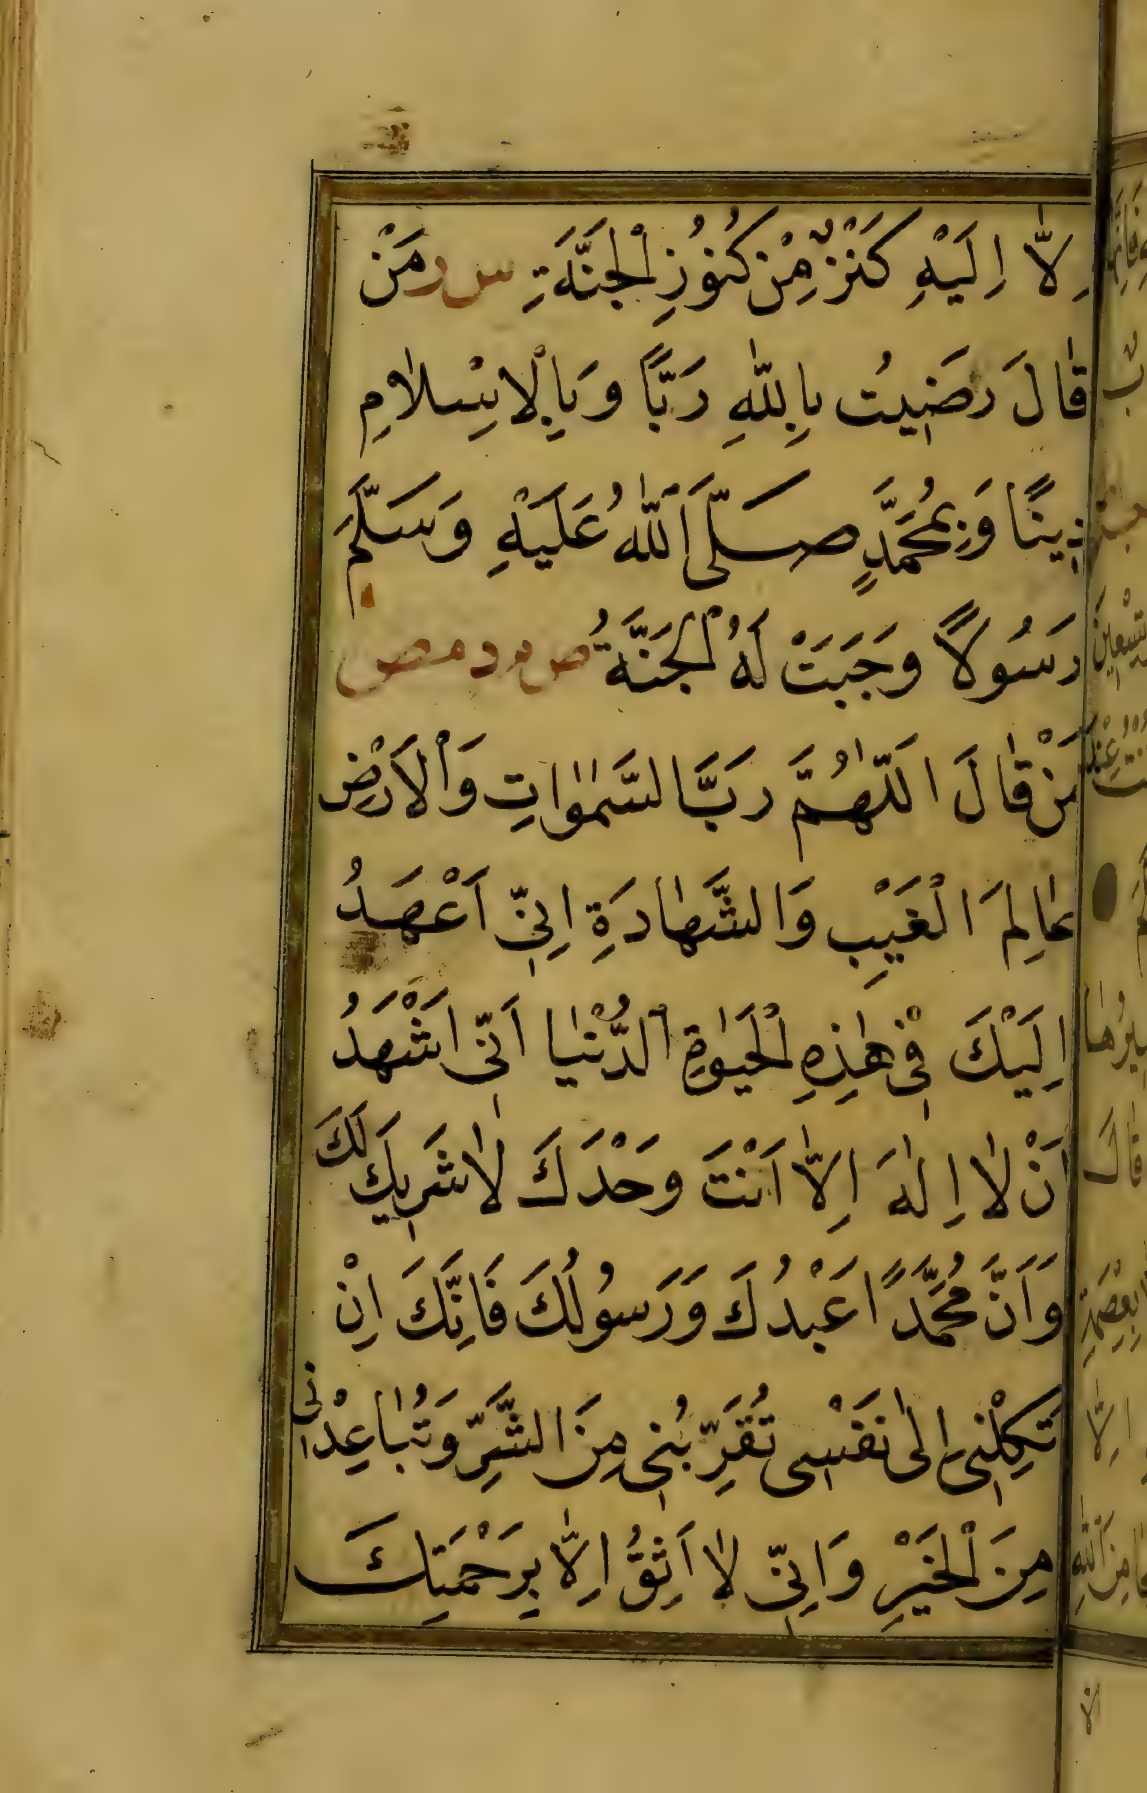 اِلاّٰ اِلَيْهِ كَنْزٌ مِنْ كُنُوزِ الْجَنَّةِ س ر مَنْ
قٰالَ رَضٖيتُ بِاللّٰهِ رَبًّا وَبِالْاِسْلٰامِ
دٖينًا وَبِمُحَمَّدٍ صَلَّى اللّٰهُ عَلَيْهِ وَسَلَّمَ
رَسُولًا وَجَبَتْ لَهُ الْجَنَّةُ ص م د مص
مَنْ قٰالَ اَللّٰهُمَّ رَبَّ السَّمٰوٰاتِ وَالْاَرْضِ
عٰالِمَ الْغَيْبِ وَالشَّهٰادَةِ اِنّٖى اَعْهَدُ
اِلَيْكَ فٖى هٰذِهِ الْحَيٰوةِ الدُّنْيٰا اَنّٖى اَشْهَدُ
اَنْ لٰا اِلٰهَ اِلاّٰ اَنْتَ وَحْدَكَ لٰا شَرٖيكَ لَكَ
وَاَنَّ مُحَمَّدًا عَبْدُكَ وَرَسُولُكَ فَاِنَّكَ اِنْ
تَكِلْنٖى اِلٰى نَفْسٖى تُقَرِّبْنٖى مِنَ الشَّرِّ وَتُبٰاعِدْنٖى
مِنَ الْخَيْرِ وَاِنّٖى لٰا اَثِقُ اِلاّٰ بِرَحْمَتِكَ